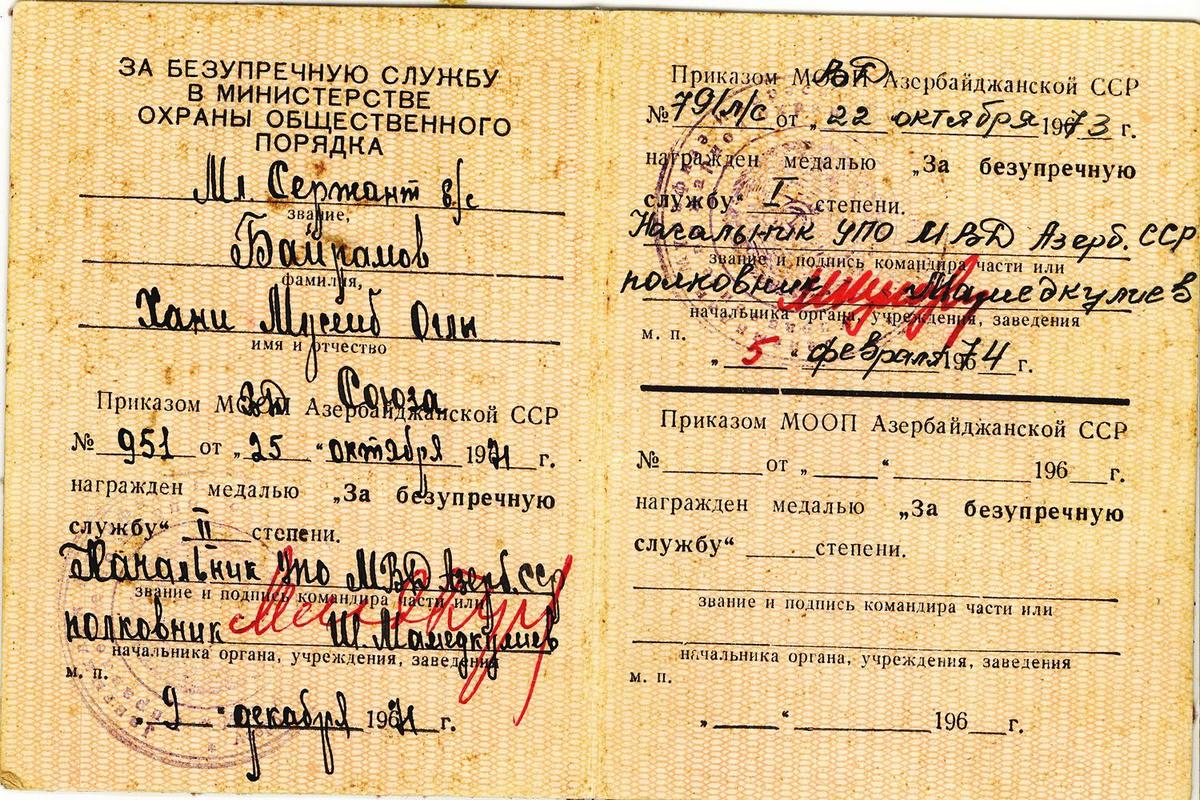 ЗА БЕЗУПРЕЧНУЮ СЛУЖБУ
В МИНИСТЕРСТВЕ
ОХРАНЫ ОБЩЕСТВЕННОГО
ПОРЯДКА
Мл. Сержант в/с
звание,
Байрамов
фамилия,
Хани Мусеиб Оглы
имя и отчество
ВД Союза
Приказом МООП Азербайджанской ССР
№ 951 от „25 “ октября 1971 г.
награжден медалью „За безупречную
службу“ II степени.
Начальник УПО МВД Азерб. ССР
звание и подпись командира части или
полковник Ш. Мамедкулиев
начальника органа, учреждения, заведения
м. п.
„ 9 “ декабря 1971 г.
Приказом МВД Азербайджанской ССР
№ 791л/с от „22 октября 1973 г.
награжден медалью „За безупречную
службу“ I степени.
Начальник УПО МВД Азерб. ССР
звание и подпись командира части или
полковник Мамедкулиев
начальника органа, учреждения, заведения
м. п.
„ 5 “ февраля 1974 г.
Приказом МООП Азербайджанской ССР
№ от „ “ 196 г.
награжден медалью „За безупречную
службу“ степени.
звание и подпись командира части или
начальника органа, учреждения, заведения
м. п.
„ “ 196 г.